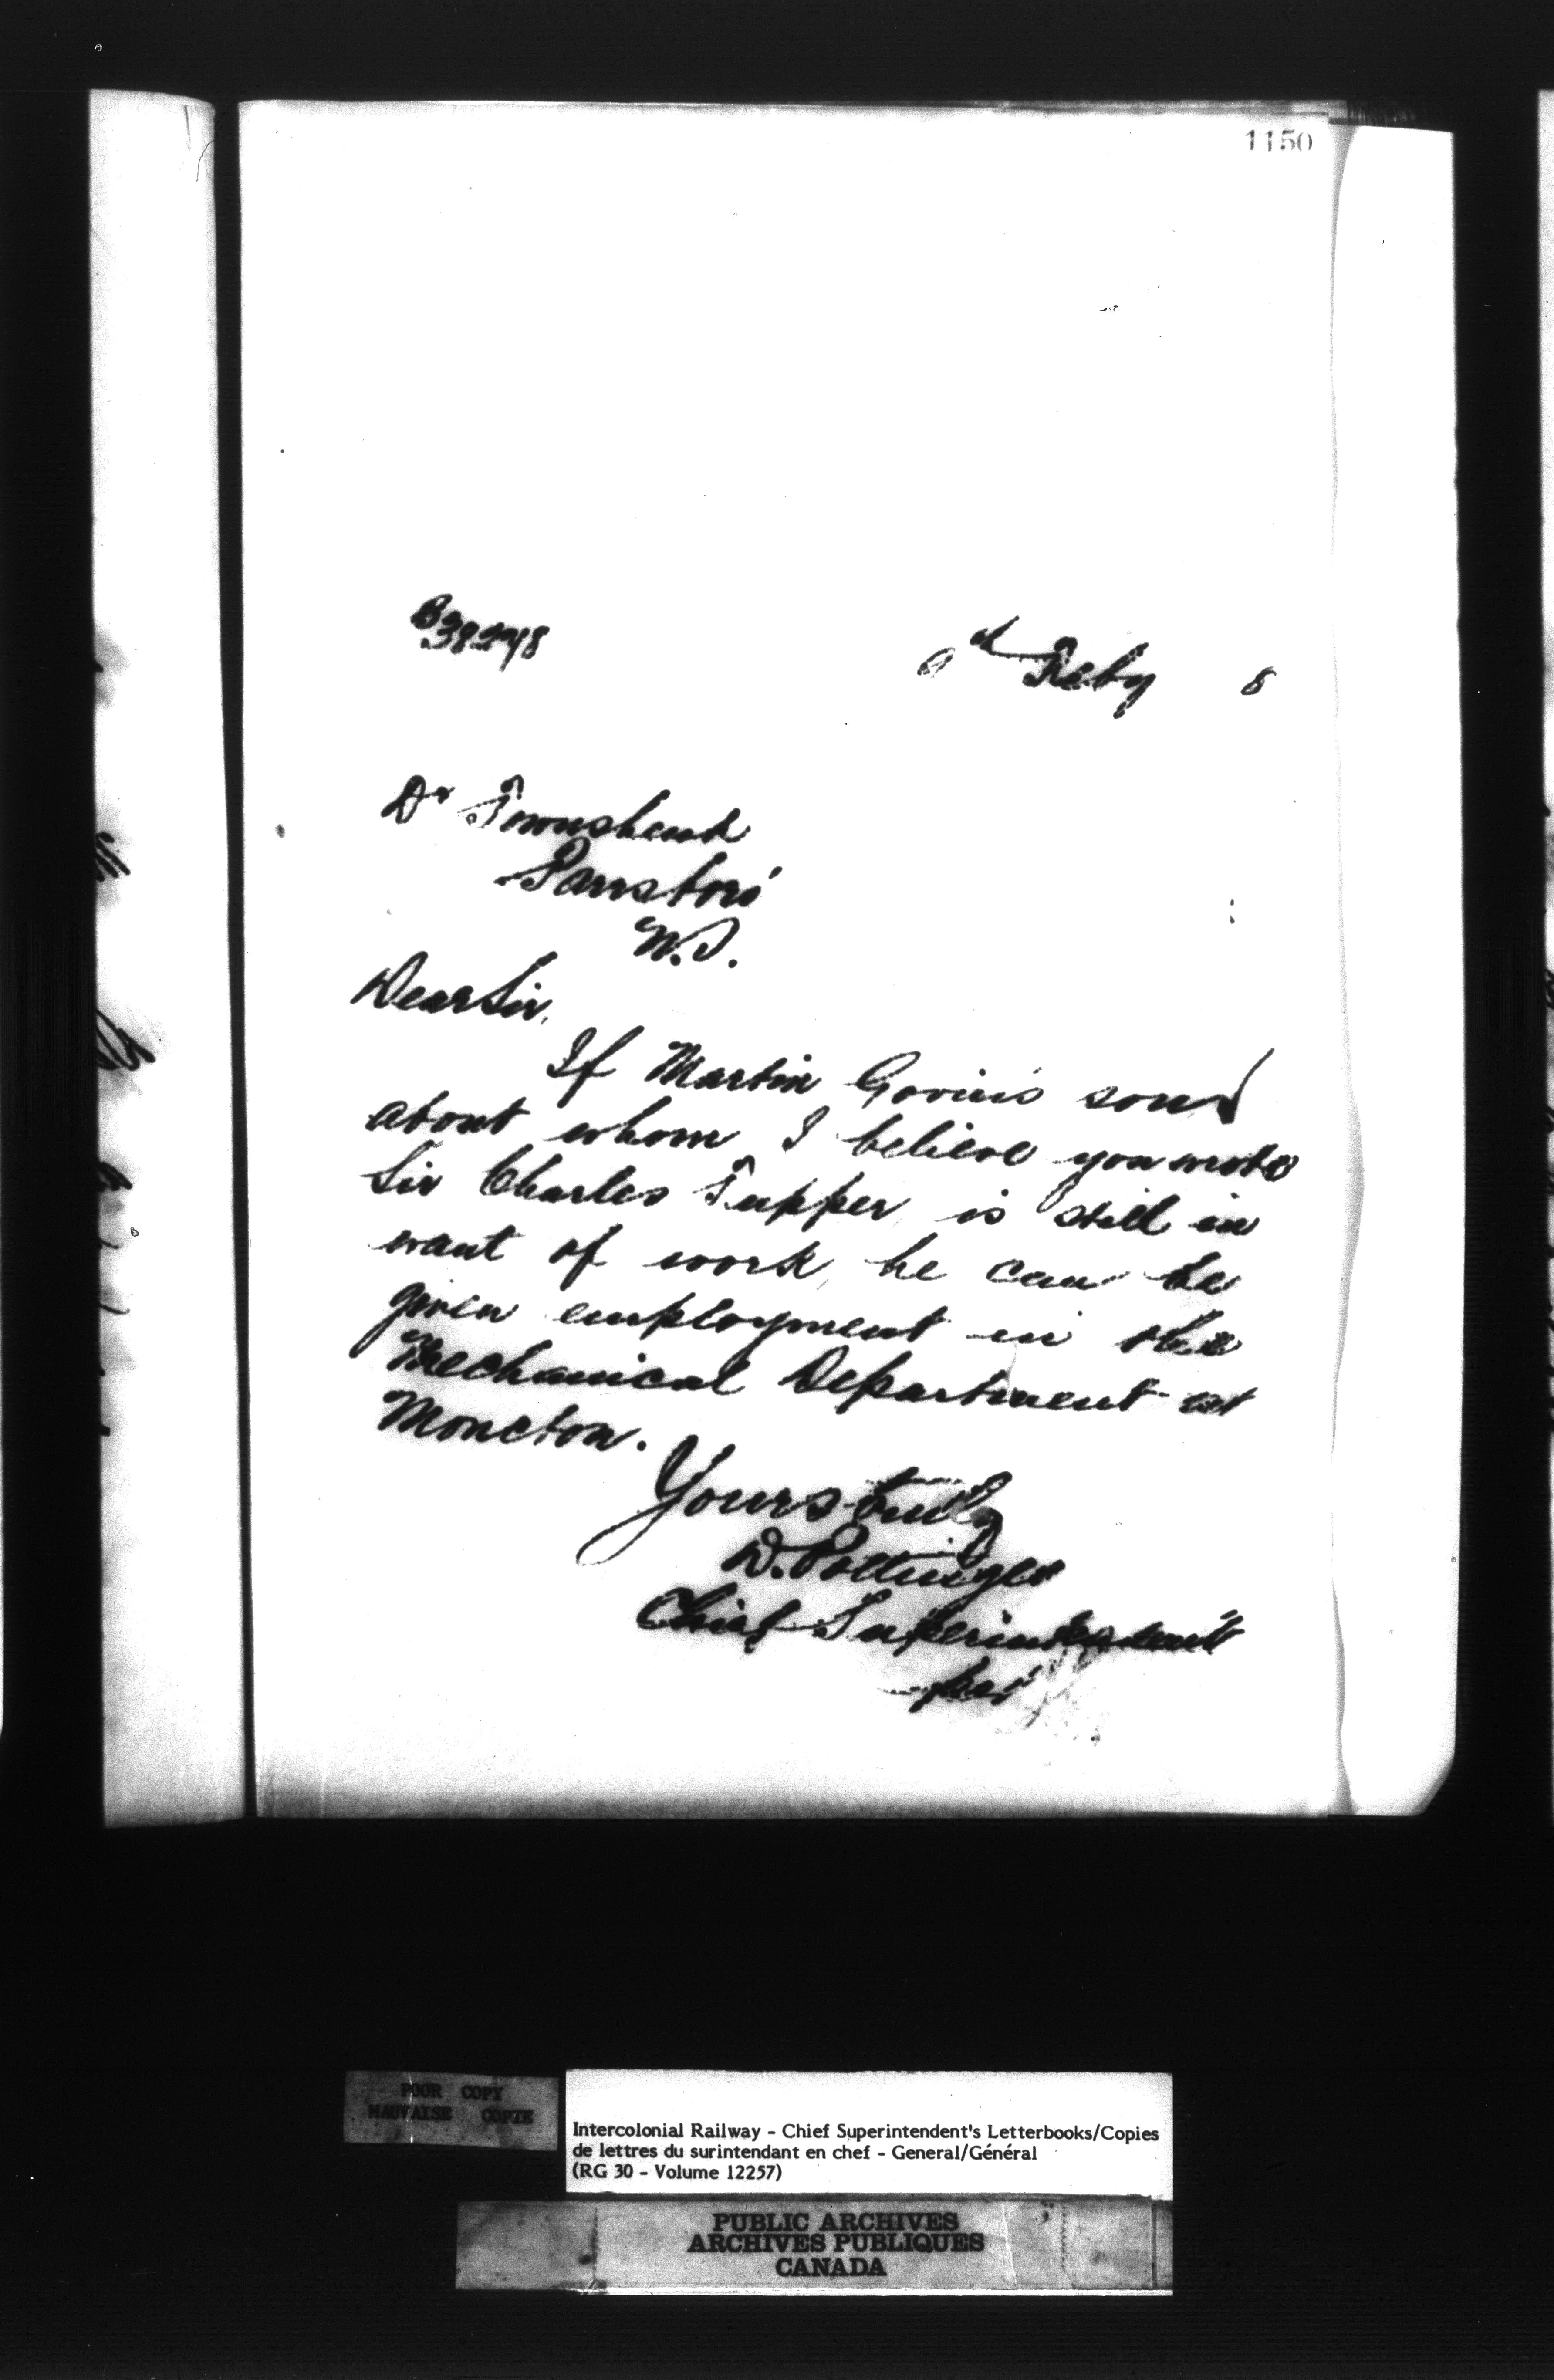 1150
B 38248
Feby 8
Dr Townshend
Parrsboro
N.S.
Dear Sir,
If Martin Gorin's son
about whom I believe you wrote
Sir Charles Tupper, is still in
want of work, he can be
given employment in the
Mechanical Department at
Moncton.
Yours truly
D. Pottinger
Chief Superintendent
per
POOR COPY
MAUVAISE COPIE
Intercolonial Railway - Chief Superintendent's Letterbooks/Copies
de lettres du surintendant en chef - General/Général
(RG 30 - Volume 12257)
PUBLIC ARCHIVES
ARCHIVES PUBLIQUES
CANADA